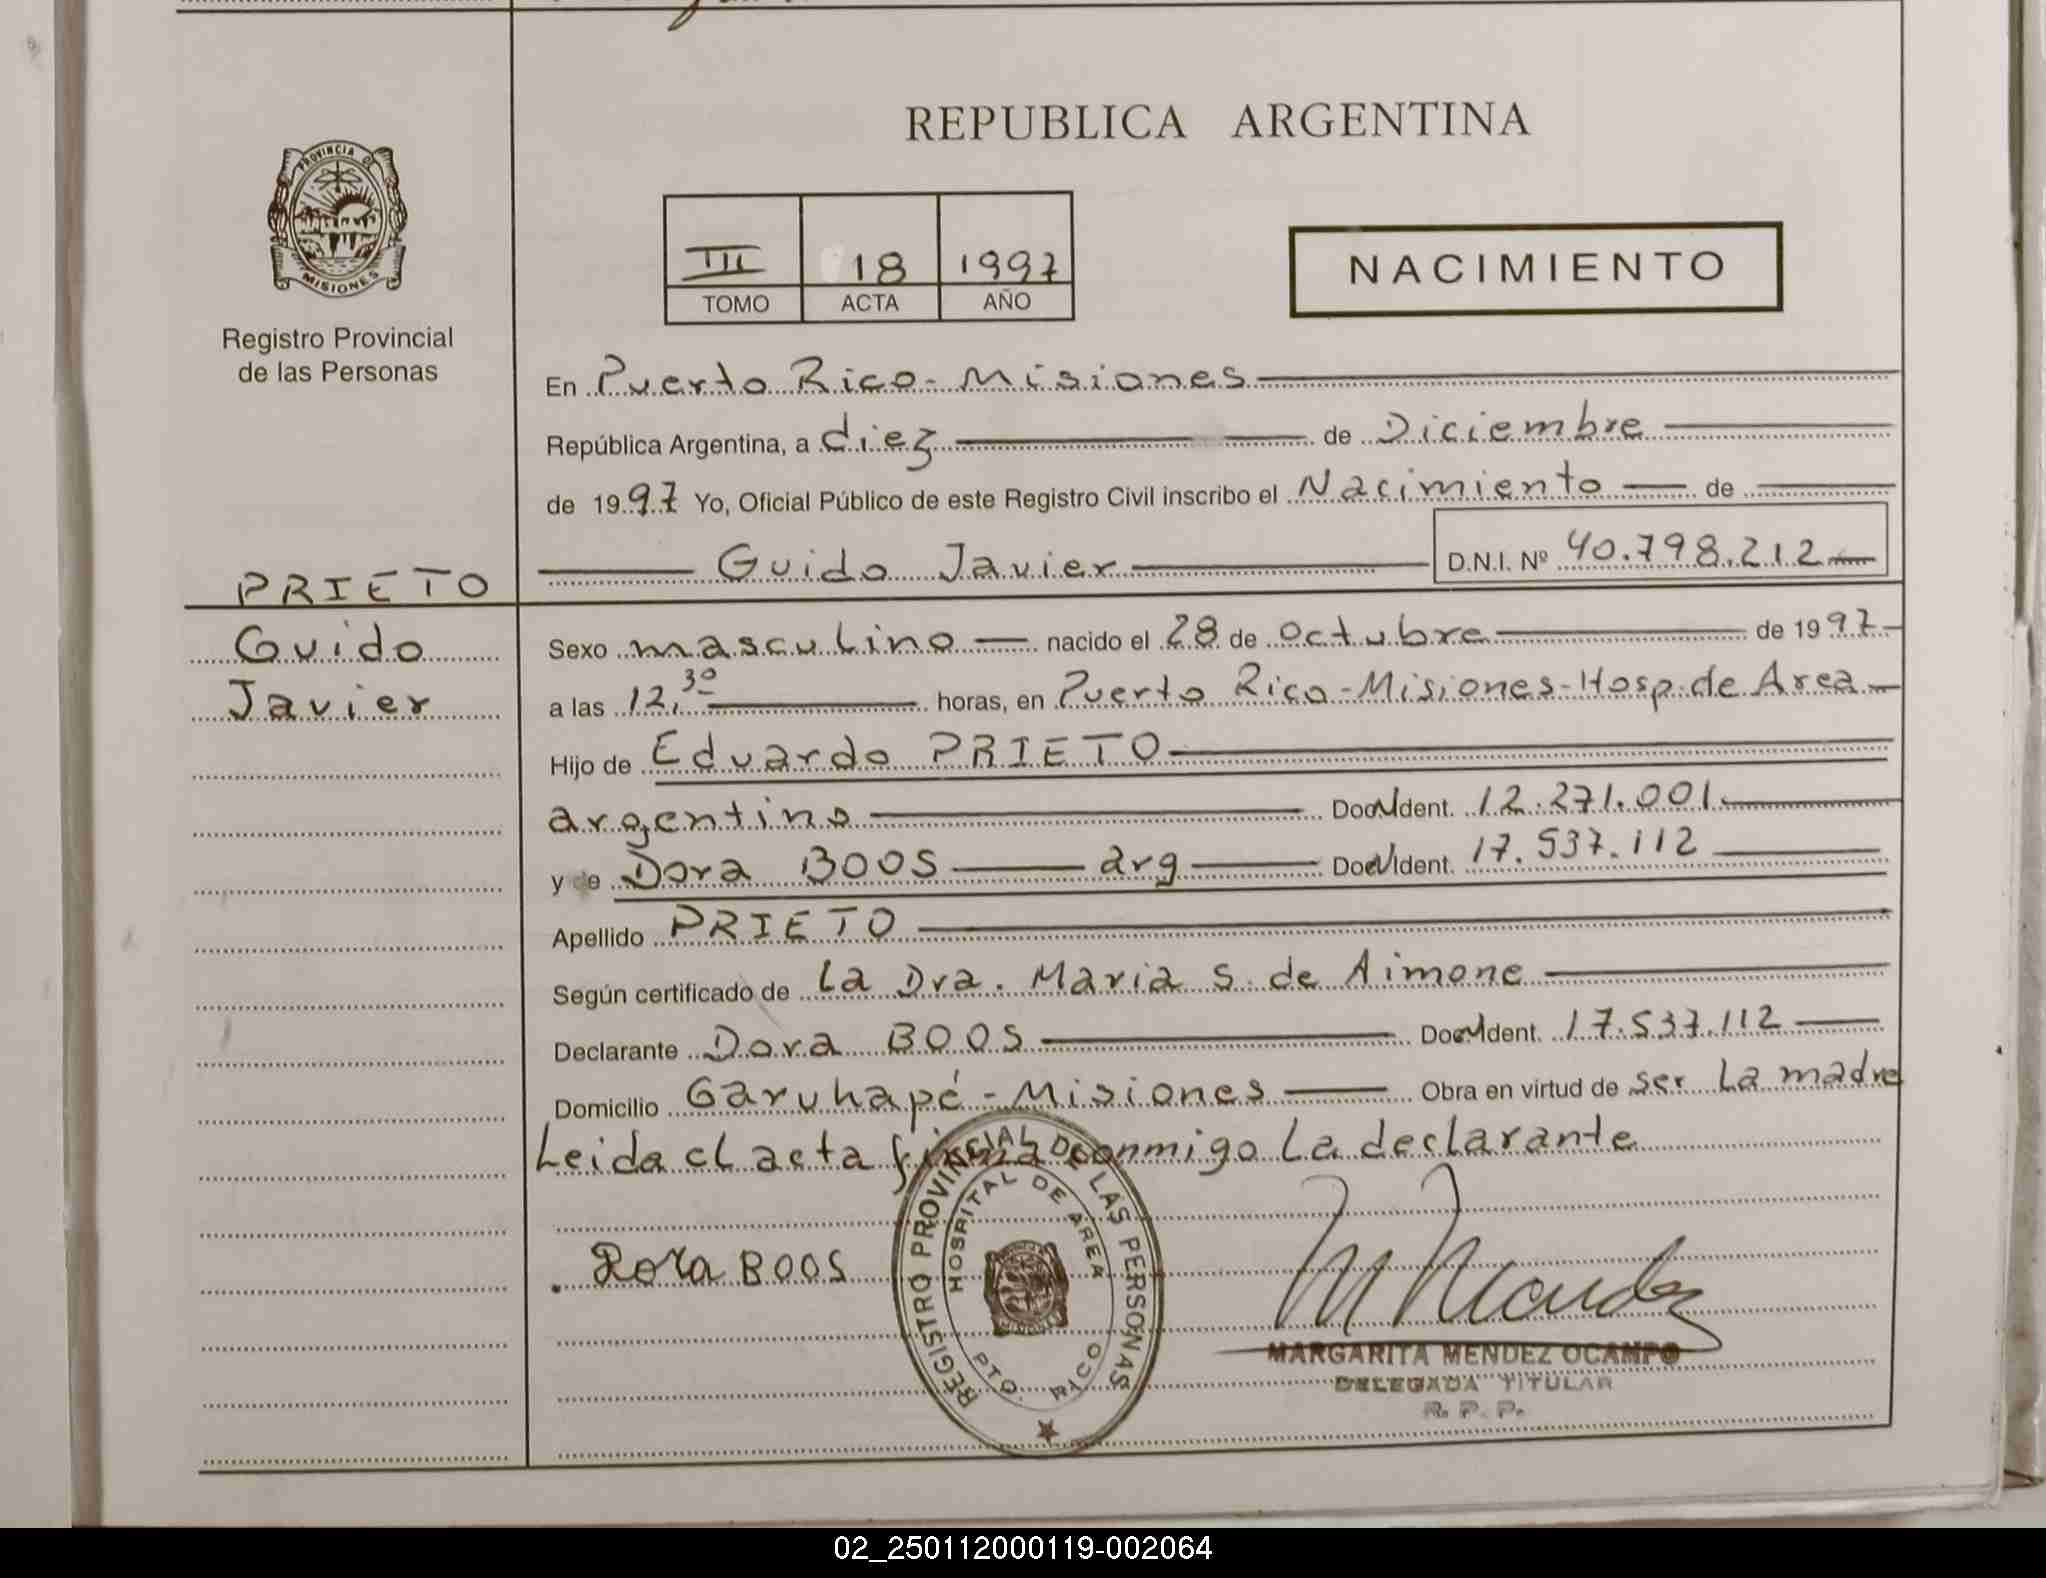 REPUBLICA ARGENTINA
PROVINCIA DE
MISIONES
Registro Provincial
de las Personas
III 18 1997
TOMO ACTA AÑO
NACIMIENTO
En Puerto Rico - Misiones
República Argentina, a diez de Diciembre
de 1997 Yo, Oficial Público de este Registro Civil inscribo el Nacimiento de
Guido Javier D.N.I. Nº 40.798.212
PRIETO
Guido
Javier
Sexo masculino nacido el 28 de octubre de 1997
a las 12,30 horas, en Puerto Rico-Misiones-Hosp.de Area
Hijo de Eduardo PRIETO
argentino Doc. Ident. 12.271.001
y de Dora BOOS arg Doc. Ident. 17.537.112
Apellido PRIETO
Según certificado de La Dra. Maria S. de Aimone
Declarante Dora BOOS Doc. Ident. 17.537.112
Domicilio Garuhapé - Misiones Obra en virtud de ser La madre
Leida el acta firma conmigo La declarante
Dora BOOS
REGISTRO PROVINCIAL DE LAS PERSONAS
HOSPITAL DE AREA
PTO. RICO
M Mendez
MARGARITA MENDEZ OCAMPO
DELEGADA TITULAR
R. P. P.
02_250112000119-002064